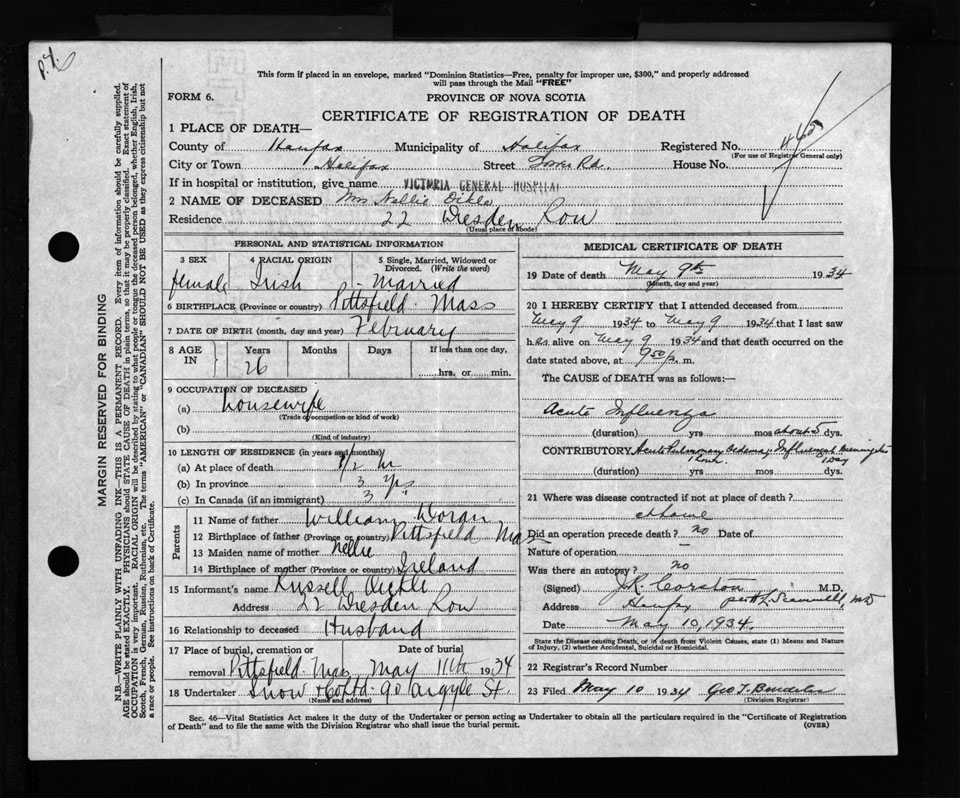 This form if placed in an envelope, marked "Dominion Statistics—Free, penalty for improper use, $300," and properly addressed
will pass through the Mail "FREE"
FORM 6.
PROVINCE OF NOVA SCOTIA
CERTIFICATE OF REGISTRATION OF DEATH
1 PLACE OF DEATH—
County of Halifax Municipality of Halifax Registered No.
(For use of Registrar General only)
City or Town Halifax Street Tower Rd. House No.
If in hospital or institution, give name VICTORIA GENERAL HOSPITAL
2 NAME OF DECEASED Mrs Nellie
Residence 22 Dresden Row
(Usual place of abode)
PERSONAL AND STATISTICAL INFORMATION
3 SEX 4 RACIAL ORIGIN 5 Single, Married, Widowed or Divorced. (Write the word)
female Irish Married
6 BIRTHPLACE (Province or country) Pittsfield Mass
7 DATE OF BIRTH (month, day and year) February
8 AGE IN Years Months Days If less than one day,
26 hrs. or min.
9 OCCUPATION OF DECEASED
(a) housewife
(Trade occupation or kind of work)
(b)
(Kind of industry)
10 LENGTH OF RESIDENCE (in years and months)
(a) At place of death 1/2 hr
(b) In province 3 yrs
(c) In Canada (if an immigrant) 3
Parents
11 Name of father William Doran
12 Birthplace of father (Province or country) Pittsfield Mass
13 Maiden name of mother Nellie
14 Birthplace of mother (Province or country) Ireland
15 Informant's name Russell
Address 22 Dresden Row
16 Relationship to deceased Husband
17 Place of burial, cremation or removal Date of burial
Pittsfield Mass May 11th 1934
18 Undertaker Snow & Co Ltd 90 Argyle St.
(Name and address)
MEDICAL CERTIFICATE OF DEATH
19 Date of death May 9th 1934
(Month, day and year)
20 I HEREBY CERTIFY that I attended deceased from
May 9 1934 to May 9 1934 that I last saw
h er alive on May 9 1934 and that death occurred on the
date stated above, at 9 50 p. m.
The CAUSE of DEATH was as follows:
Acute Influenza
(duration) yrs mos about 5 dys.
CONTRIBUTORY Acute Pulmonary Oedema; Influenzal Meningitis
(duration) 1 hour. yrs mos 1 Day dys.
21 Where was disease contracted if not at place of death?
at home
Did an operation precede death? no Date of
Nature of operation
Was there an autopsy? no
(Signed) J.R. Corston M.D.
Address Halifax
Date May 10, 1934.
State the Disease causing Death, or in death from Violent Causes, state (1) Means and Nature
of Injury, (2) whether Accidental, Suicidal or Homicidal.
22 Registrar's Record Number
23 Filed May 10 1934 Geo T.
(Division Registrar)
Sec. 46—Vital Statistics Act makes it the duty of the Undertaker or person acting as Undertaker to obtain all the particulars required in the "Certificate of Registration
of Death" and to file the same with the Division Registrar who shall issue the burial permit.
(OVER)
MARGIN RESERVED FOR BINDING
N.B.—WRITE PLAINLY WITH UNFADING INK—THIS IS A PERMANENT RECORD. Every item of information should be carefully supplied.
AGE should be stated EXACTLY. PHYSICIANS should STATE CAUSE OF DEATH in plain terms, so that it may be properly classified. Exact statement of
OCCUPATION is very important. RACIAL ORIGIN will be described by stating to what people or tongue the deceased person belonged, whether English, Irish,
Scotch, French, German, Russian, Ruthenian, etc. The terms "AMERICAN" or "CANADIAN" SHOULD NOT BE USED as they express citizenship but not
a race or people. See instructions on back of Certificate.